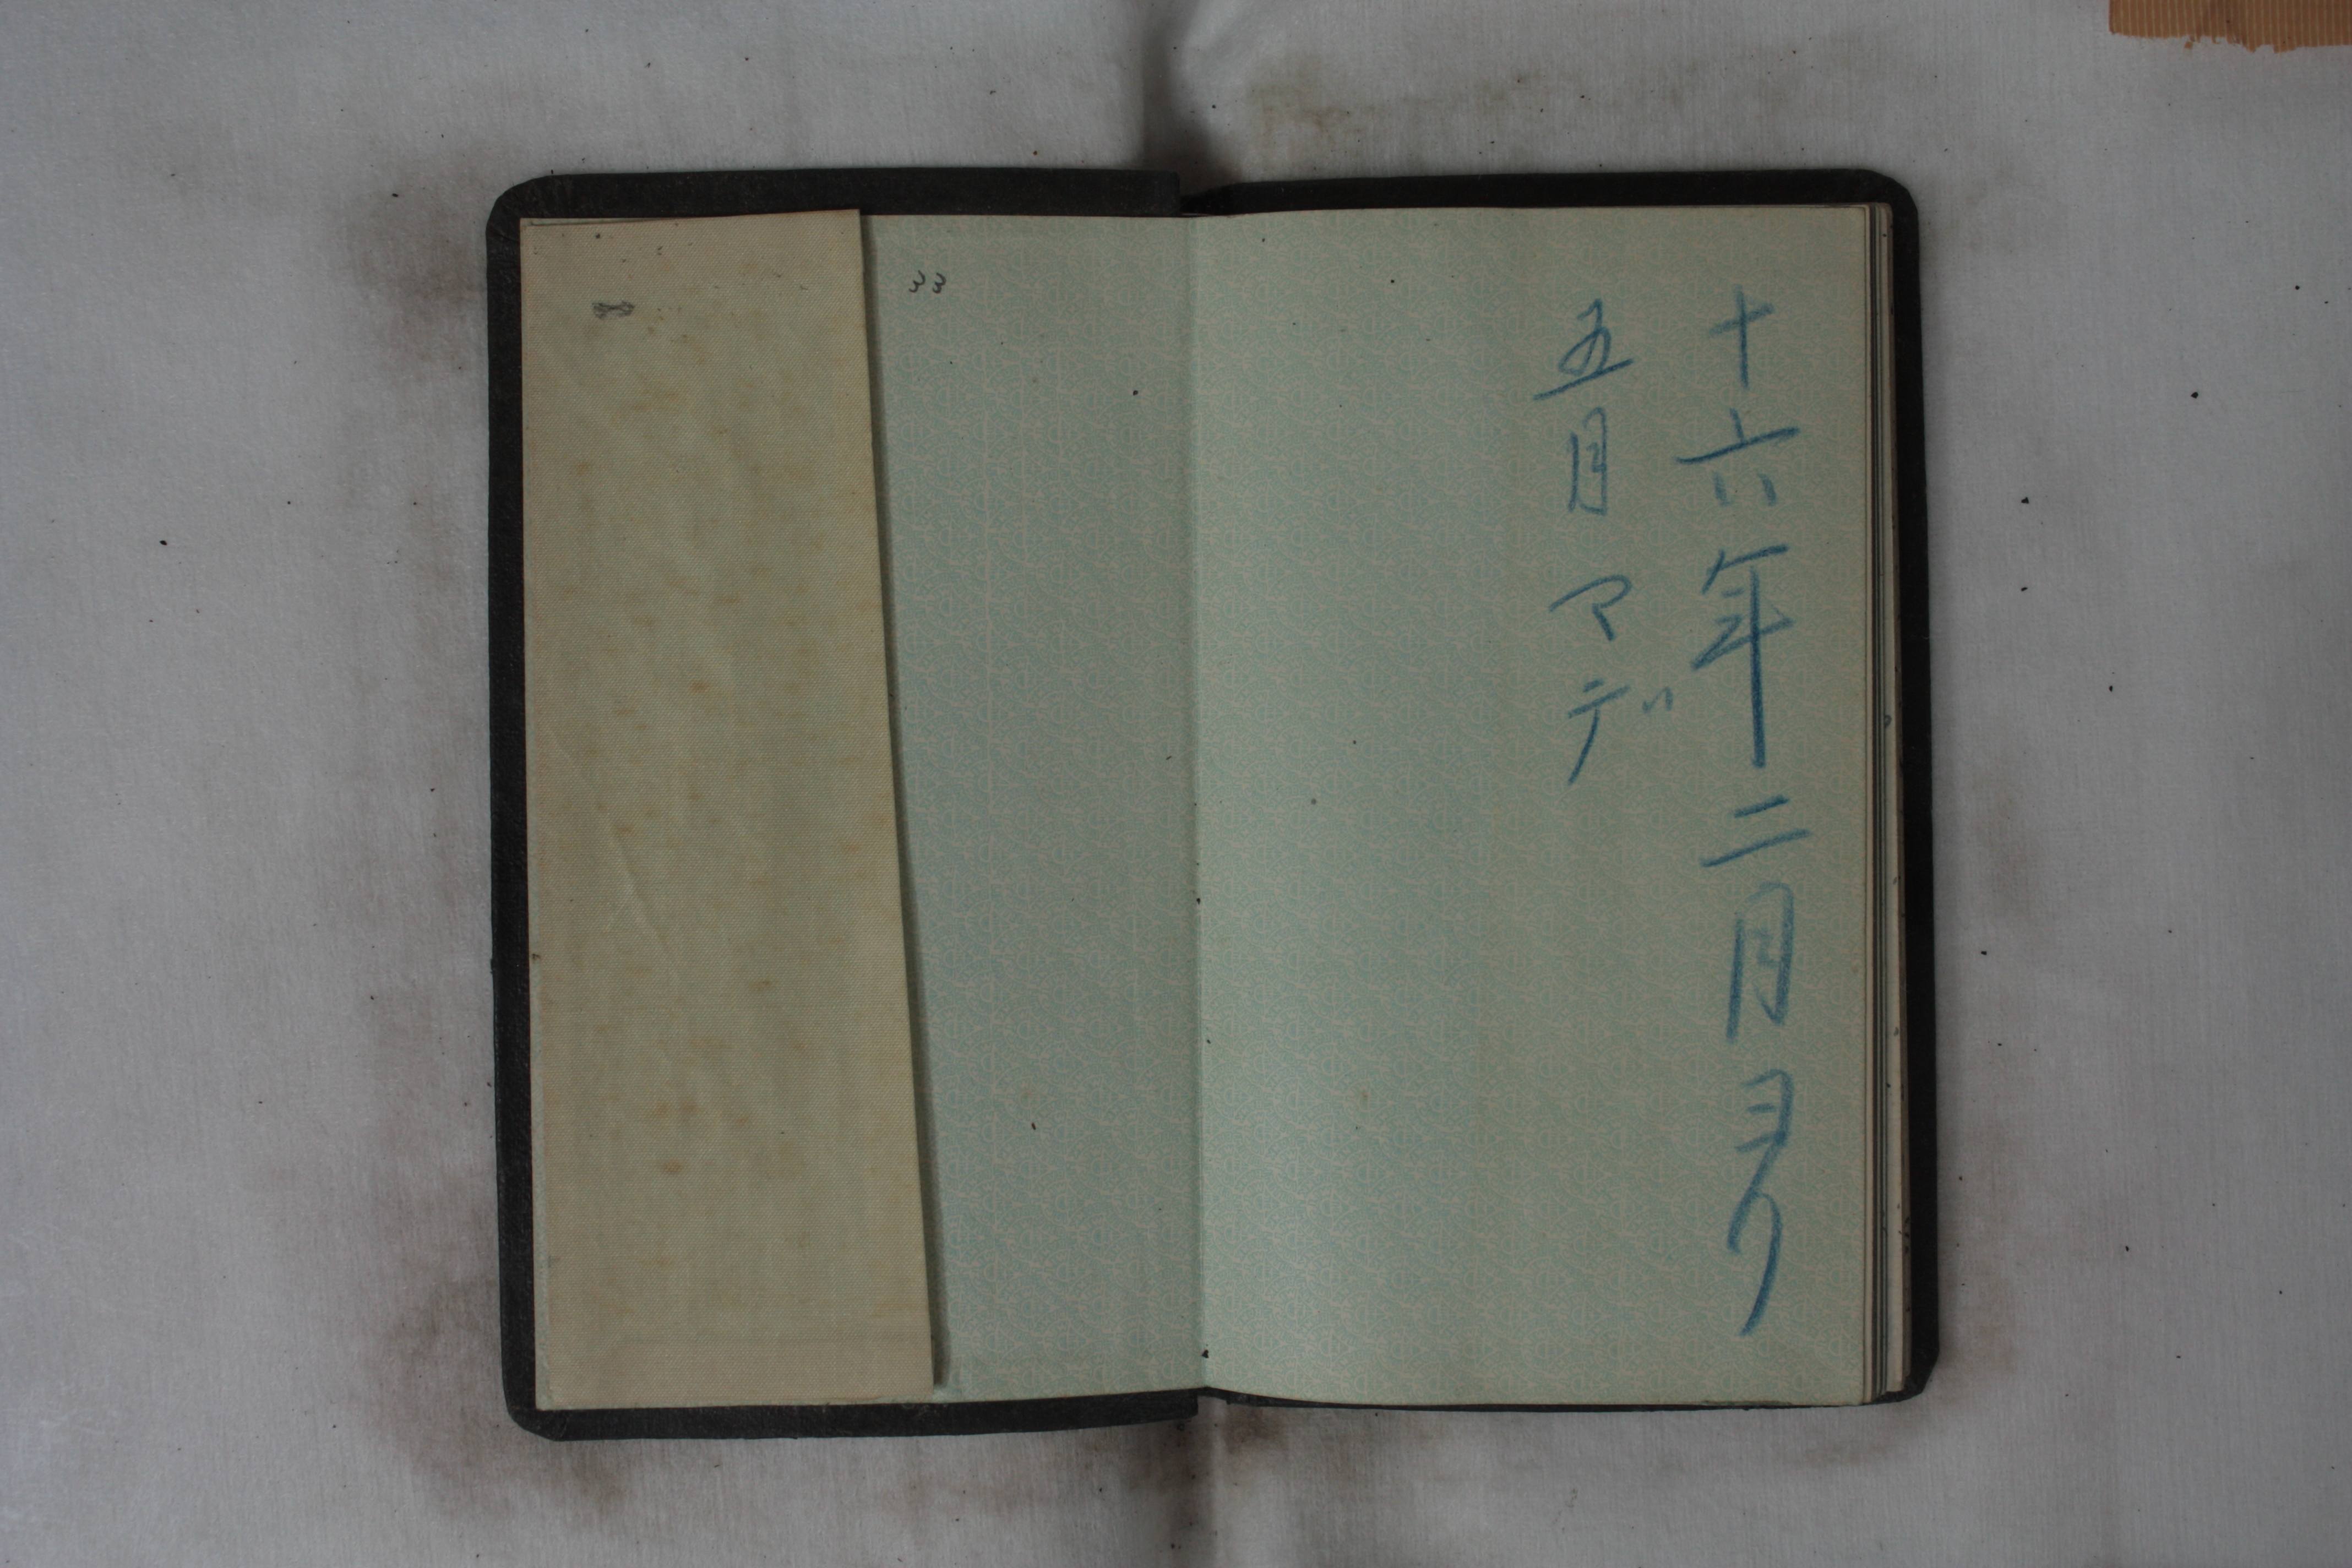 十六年二月ヨリ
五月マデ
33